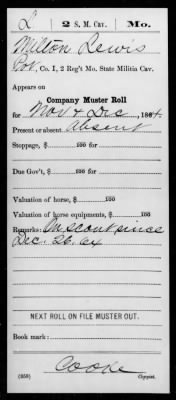 L 2 S. M. Cav. Mo.
Milton Lewis
Pvt, Co. I, 2 Reg't Mo. State Militia Cav.
Appears on
Company Muster Roll
for Nov & Dec, 1864.
Present or absent Absent
Stoppage, $ 100 for
Due Gov't, $ 100 for
Valuation of horse, $ 100
Valuation of horse equipments, $ 100
Remarks: On scout since
Dec. 26. 64
NEXT ROLL ON FILE MUSTER OUT.
Book mark:
Cooke
(359) Copyist.